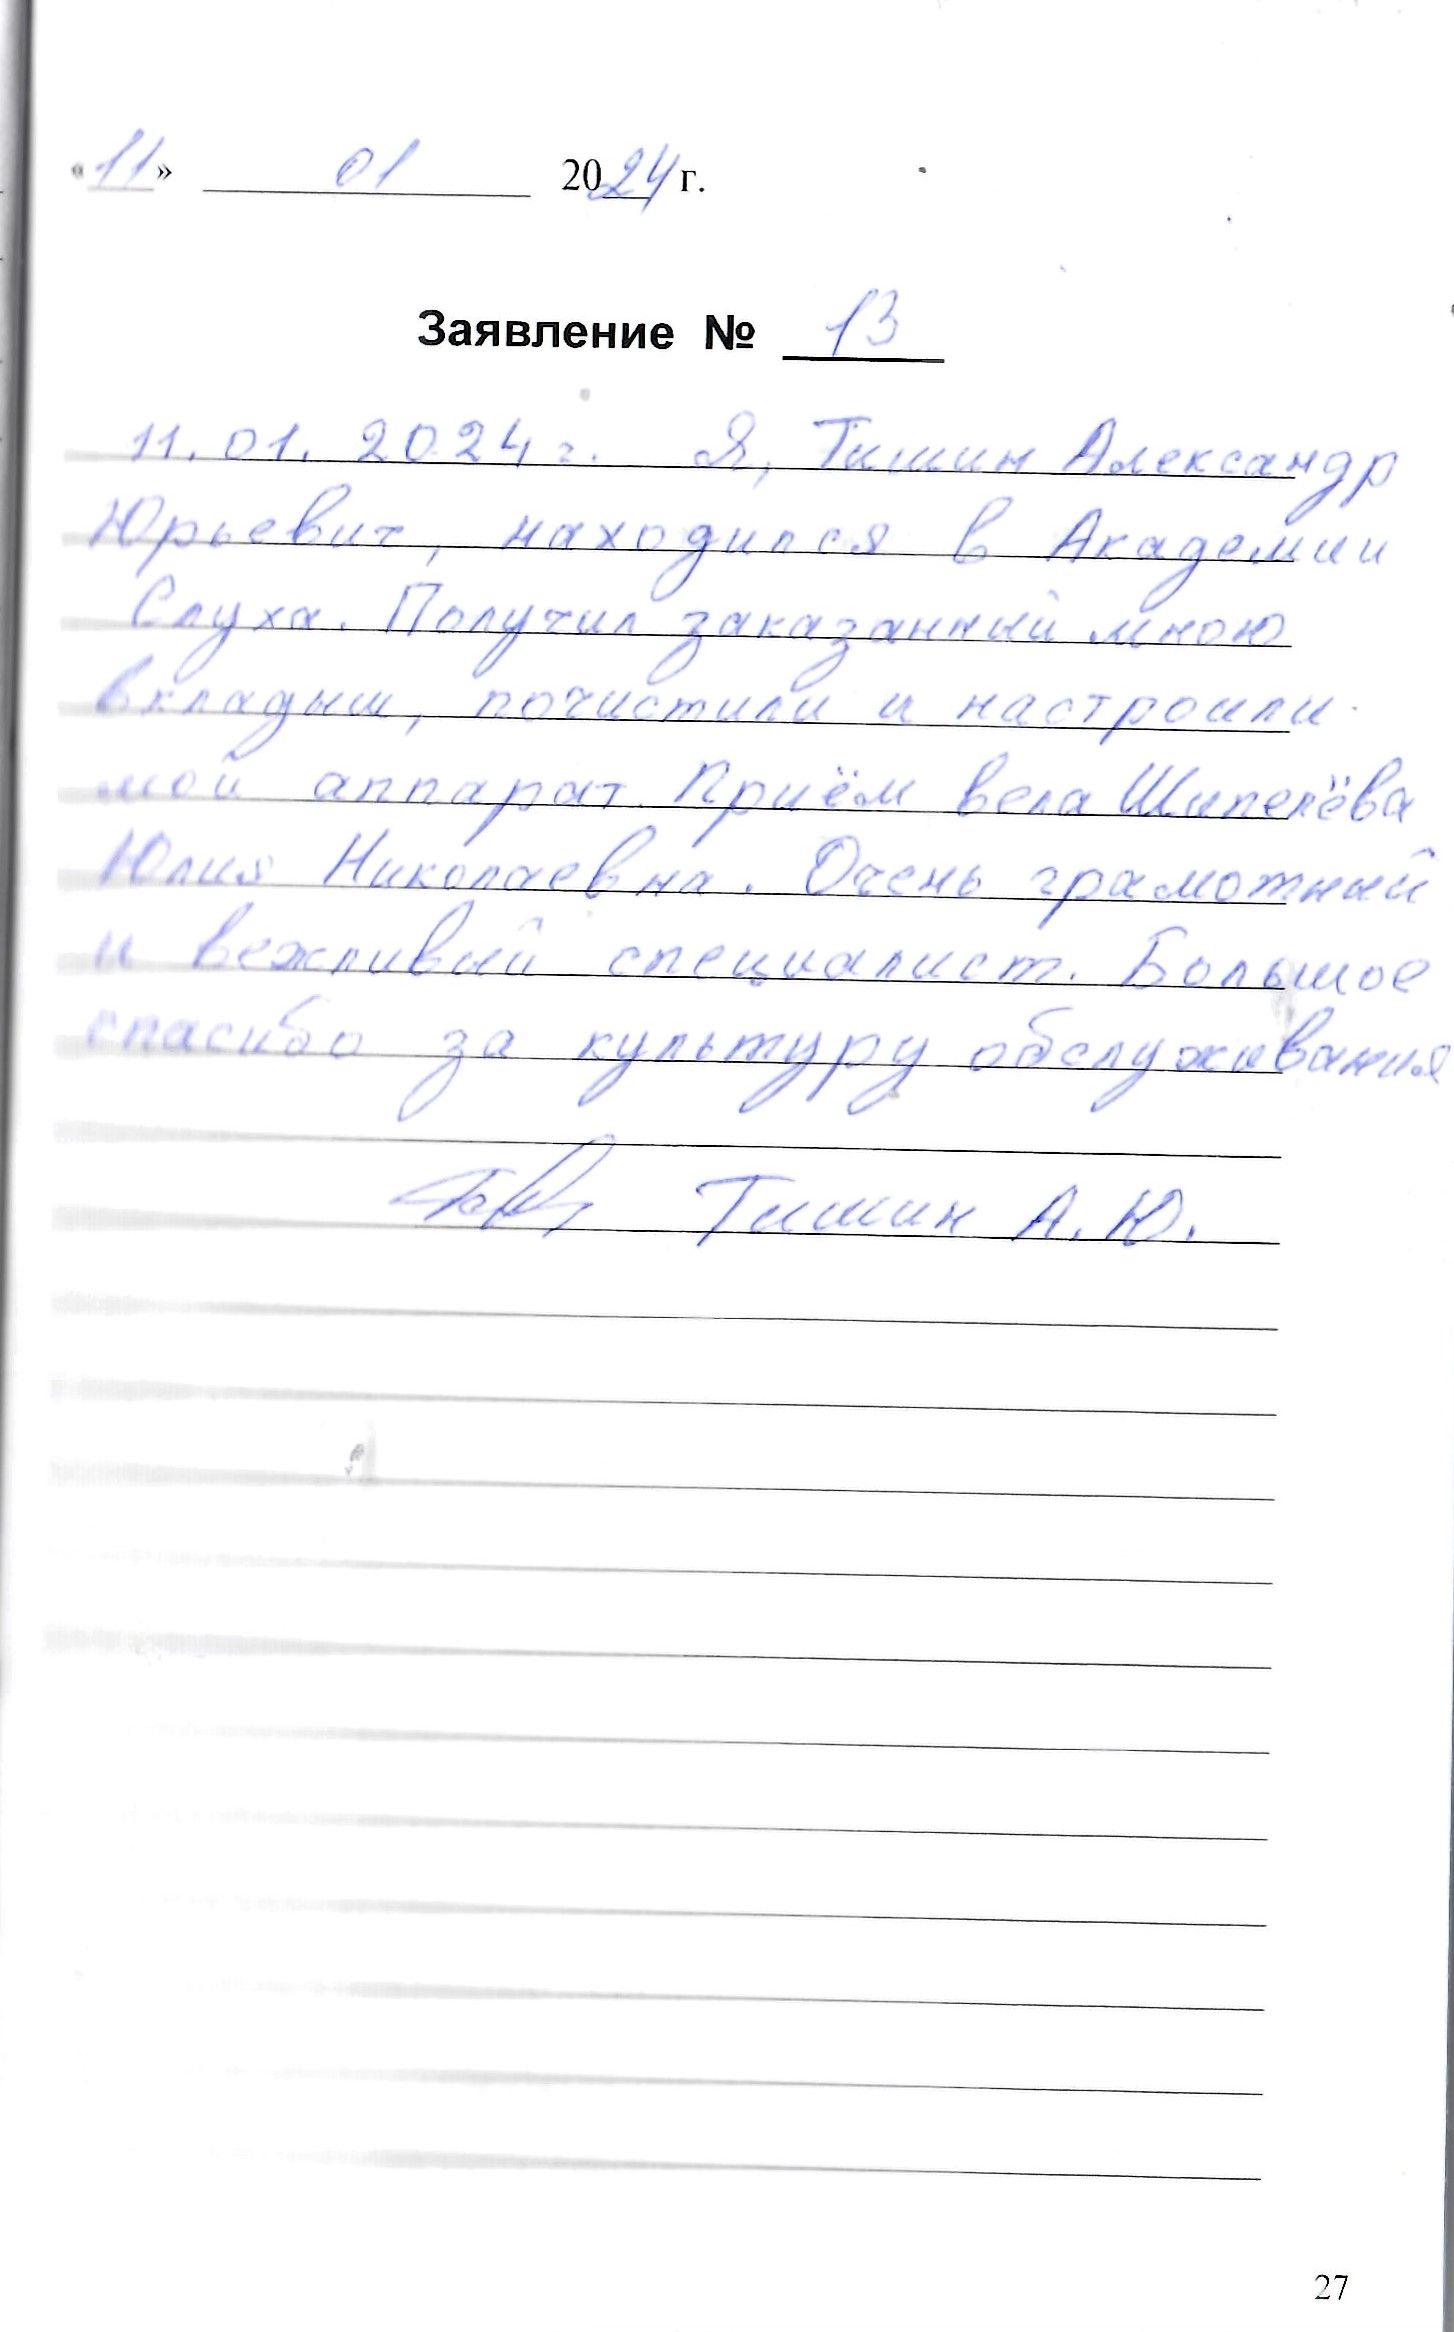 «11» 01 2024 г.
Заявление № 13
11.01.2024 г. Я, Тишин Александр
Юрьевич, находился в Академии
Слуха. Получил заказанный мною
вкладыш, почистили и настроили
мой аппарат. Приём вела Шипелёва
Юлия Николаевна. Очень грамотный
и вежливый специалист. Большое
спасибо за культуру обслуживания
Тишин А.Ю.
27